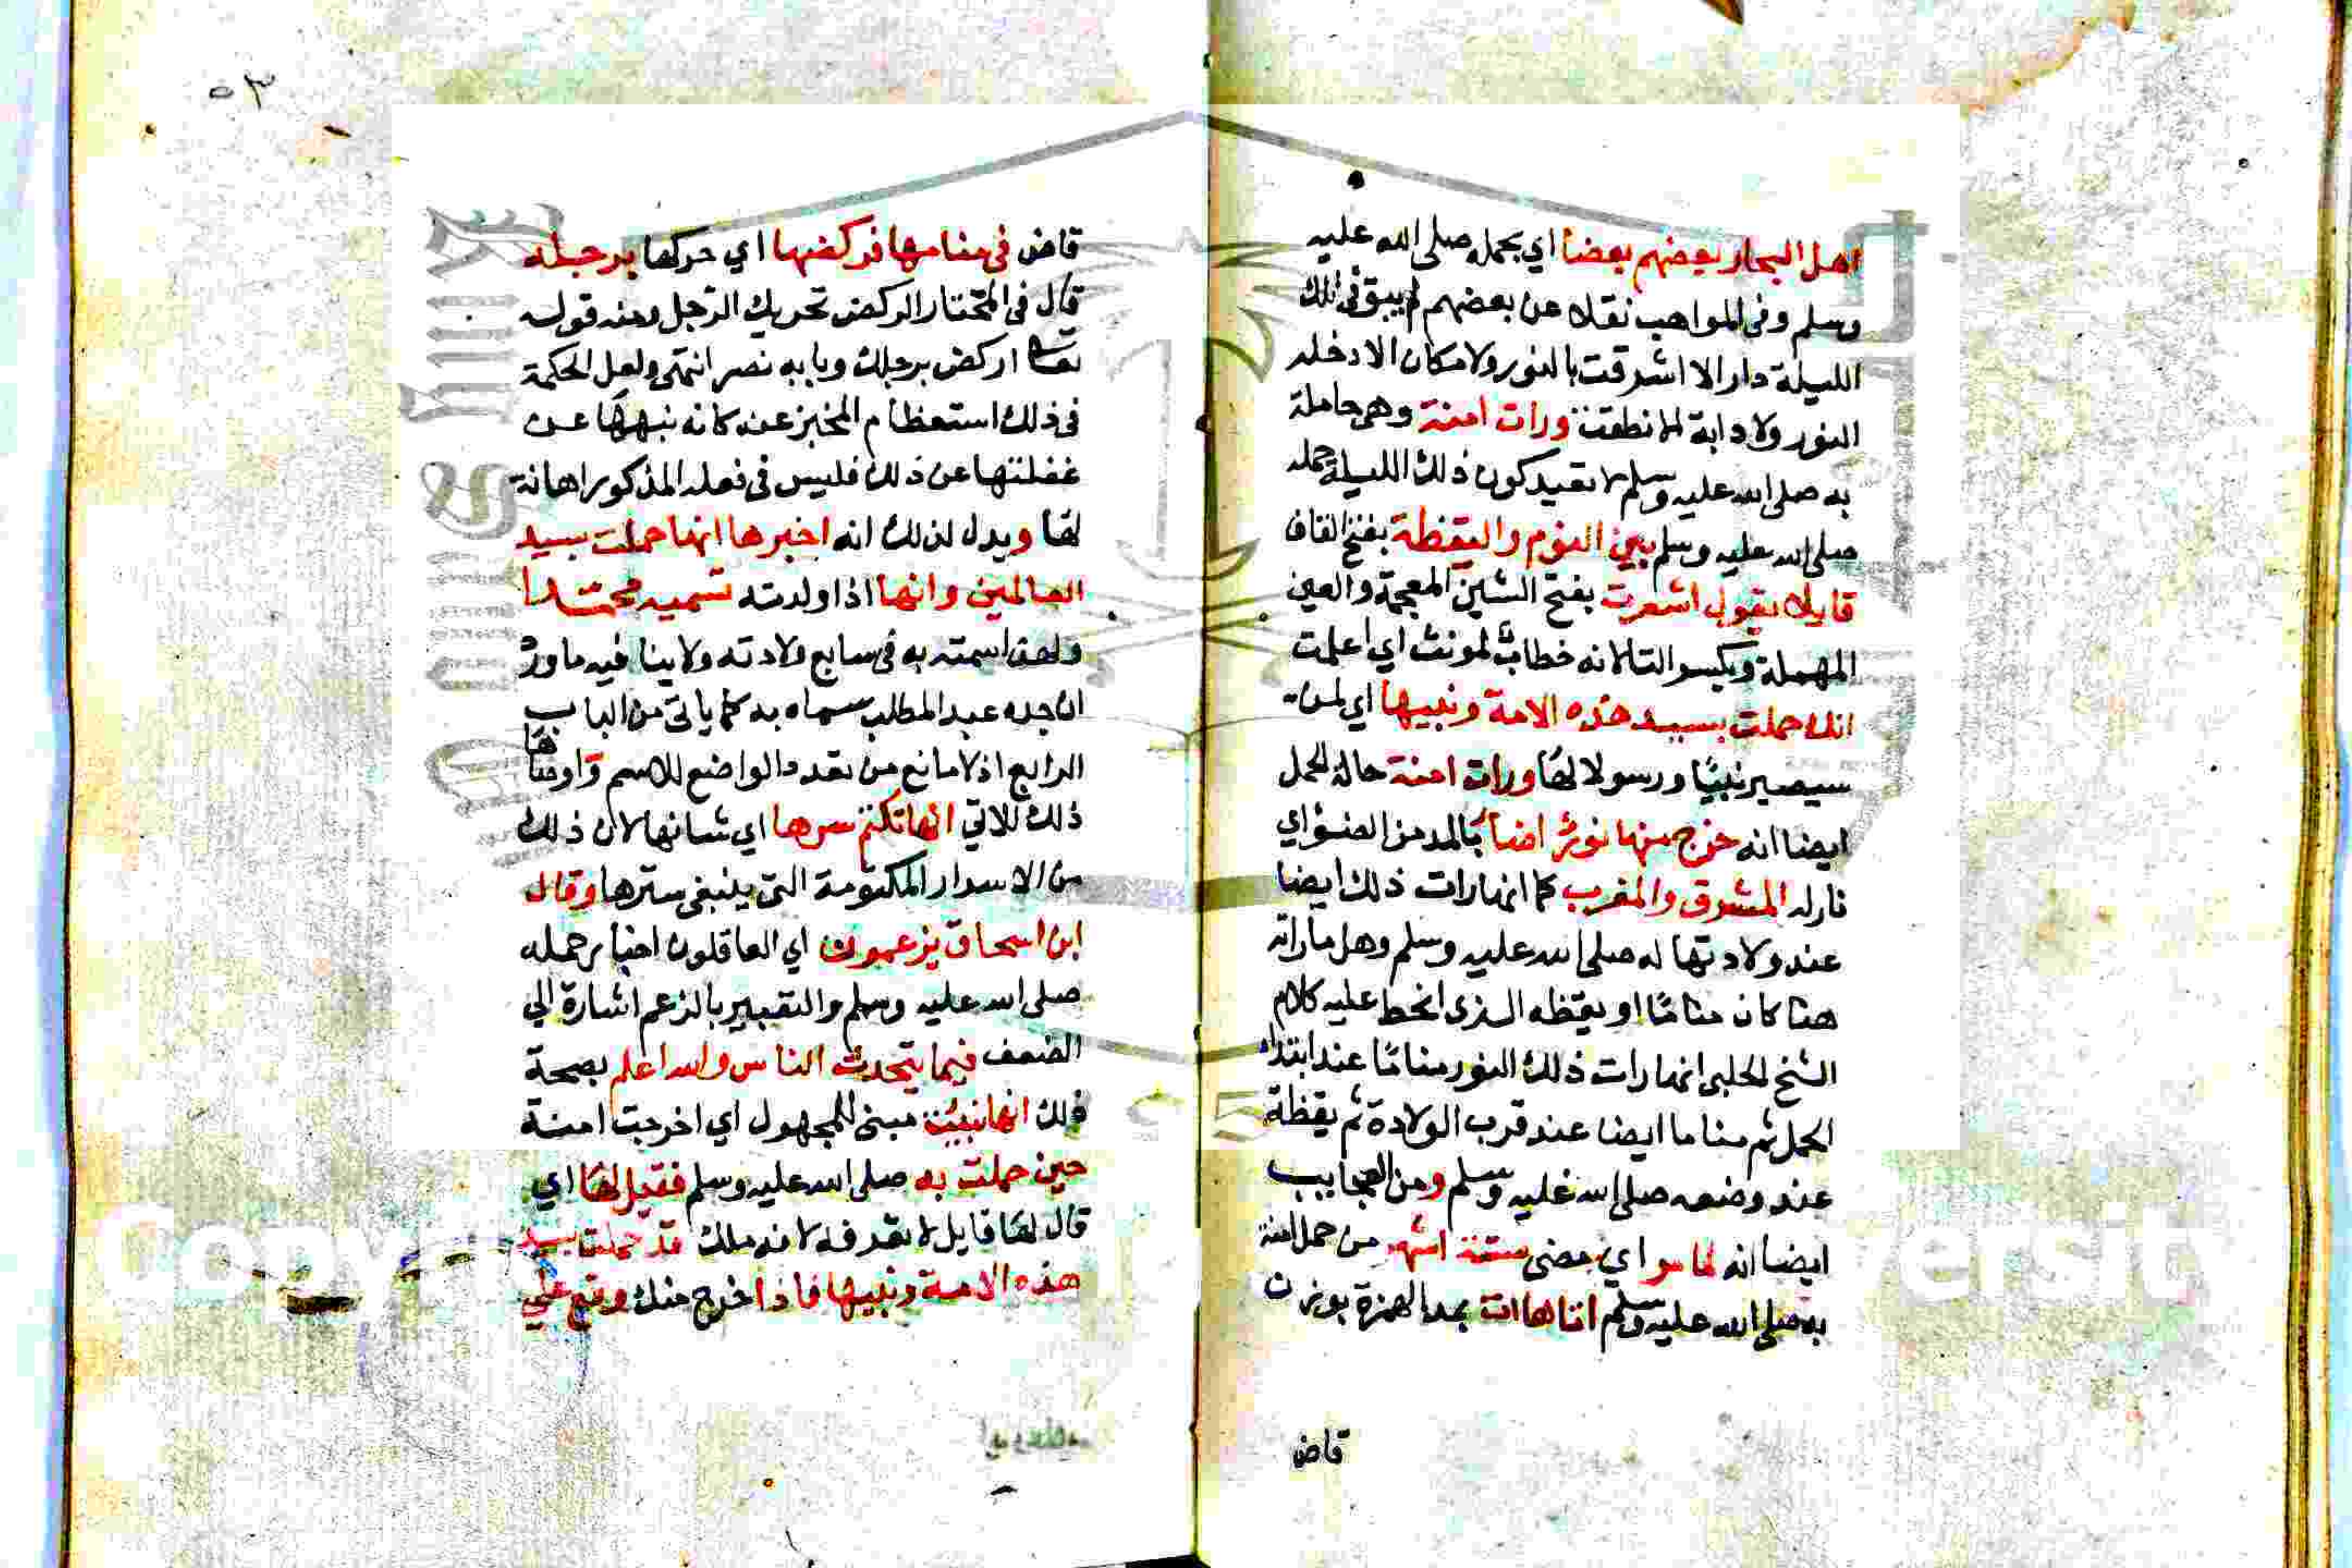 اهل البحار بعضهم بعضا اي بحمله صلى الله عليه
وسلم وفي المواهب نقلا عن بعضهم لم يبق في تلك
الليلة دار الا اشرقت بالنور ولا مكان الا دخله
النور ولا دابة الا نطقت ورات امنة وهي حاملة
به صلى الله عليه وسلم لا بقيد كون ذلك الليلة حمله
صلى الله عليه وسلم بين النوم واليقظة بفتح القاف
قايلا يقول اشعرت بفتح الشين المعجمة والعين
المهملة وبكسر التا لانه خطاب لمونث اي اعلمت
انك حملت بسيد هذه الامة ونبيها اي لمن
سيصير نبيا ورسولا لها ورات امنة حالة الحمل
ايضا انه خرج منها نور اضا بالمد من الضؤ اي
نار له المشرق والمغرب كما انها رات ذلك ايضا
عند ولادتها له صلى الله عليه وسلم وهل ما راته
هنا كان مناما او يقظه الذى انحط عليه كلام
الشيخ الحلبي انها رات ذلك النور مناما عند ابتداء
الحمل ثم مناما ايضا عند قرب الولادة ثم يقظة
عند وضعه صلى الله عليه وسلم ومن العجايب
ايضا انه لما مر اي مضى ستة اشهر من حمل امنة
به صلى الله عليه وسلم اتاها ات بمد الهمزة بوزن
قاض
٥٣
قاض في منامها فركضها اي حركها برجله
قال في المختار الركض تحريك الرجل ومنه قوله
تعالى اركض برجلك وبابه نصر انتهى ولعل الحكمة
في ذلك استعظام المخبر عنه كانه نبهها عن
غفلتها عن ذلك فليس في فعله المذكور اهانة
لها ويدل لذلك انه اخبرها انها حملت بسيد
العالمين وانها اذا ولدته تسميه محمدا
ولهذا سمته به في سابع ولادته ولا ينا فيه ما ورد
ان جده عبد المطلب سماه به كما ياتي من الباب
الرابع اذ لا مانع من تعدد الواضع للاسم واوصاها
ذلك الاتي انها تكتم سرها اي شانها لان ذلك
من الاسرار المكتومة التي ينبغي سترها وقال
ابن اسحاق يزعمون اي العاقلون اخبار حمله
صلى الله عليه وسلم والتعبير بالزعم اشارة الي
الضعف فيما يتحدث الناس والله اعلم بصحة
ذلك انها مبني للمجهول اي اخرجت امنة
حين حملت به صلى الله عليه وسلم فقيل لها اي
قال لها قايل لا تعرفه لانه ملك قد حملت بسيد
هذه الامة ونبيها فاذا خرج منك وقع علي